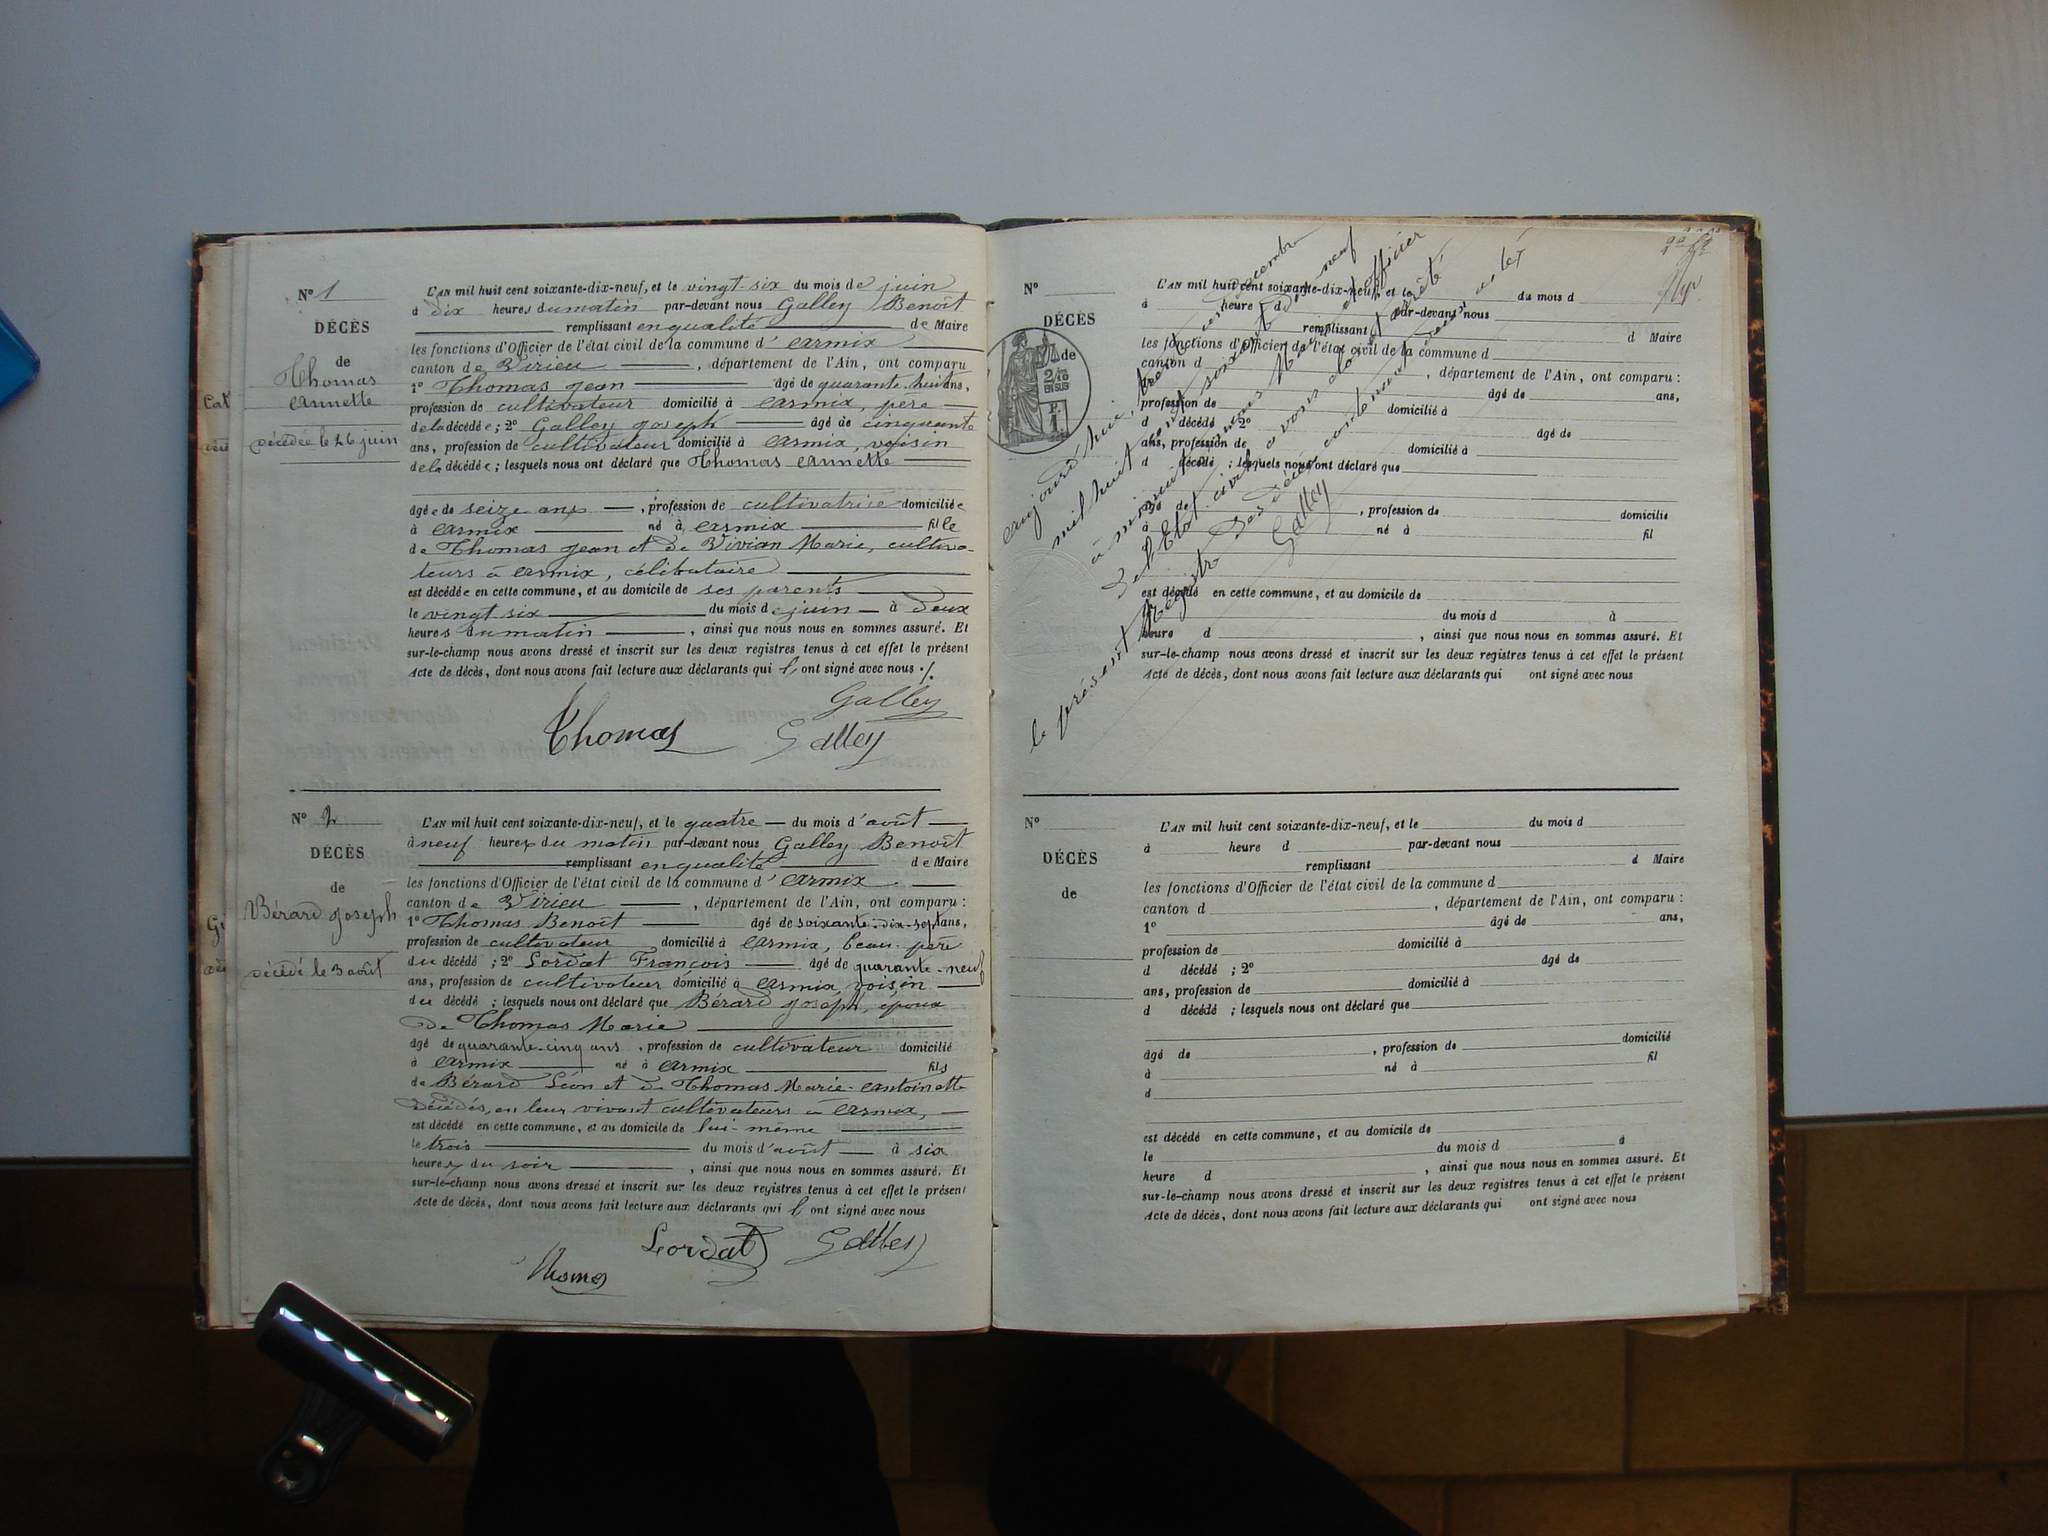 N° 1
DÉCÈS
de
Thomas
Annette
décédée le 26 juin
L'AN mil huit cent soixante-dix-neuf, et le vingt six du mois de juin
à dix heures du matin par-devant nous Galley Benoît
remplissant en qualité de Maire
les fonctions d'Officier de l'état civil de la commune d'Armix
canton de Virieu, département de l'Ain, ont comparu
1° Thomas Jean âgé de quarante-huit ans,
profession de cultivateur domicilié à Armix, père
de la décédée ; 2° Galley Joseph âgé de cinquante
ans, profession de cultivateur domicilié à Armix, voisin
de la décédée ; lesquels nous ont déclaré que Thomas Annette
âgée de seize ans, profession de cultivatrice domiciliée
à Armix né à Armix fille
de Thomas Jean et de Vivian Marie, cultiva-
teurs à Armix, célibataire
est décédée en cette commune, et au domicile de ses parents
le vingt six du mois de juin à deux
heures du matin, ainsi que nous nous en sommes assuré. Et
sur-le-champ nous avons dressé et inscrit sur les deux registres tenus à cet effet le présent
Acte de décès, dont nous avons fait lecture aux déclarants qui l'ont signé avec nous ./.
Galley
Thomas Galley
N° 2
DÉCÈS
de
Bérard Joseph
décédé le 3 août
L'AN mil huit cent soixante-dix-neuf, et le quatre du mois d'août
à neuf heures du matin par-devant nous Galley Benoît
remplissant en qualité de Maire
les fonctions d'Officier de l'état civil de la commune d'Armix
canton de Virieu, département de l'Ain, ont comparu :
1° Thomas Benoît âgé de soixante-dix-sept ans,
profession de cultivateur domicilié à Armix, beau-père
du décédé ; 2° Lordat François âgé de quarante-neuf
ans, profession de cultivateur domicilié à Armix, voisin
du décédé ; lesquels nous ont déclaré que Bérard Joseph, époux
de Thomas Marie
âgé de quarante-cinq ans, profession de cultivateur domicilié
à Armix né à Armix fils
de Bérard Léon et de Thomas Marie-Antoinette
décédés, en leur vivant cultivateurs à Armix,
est décédé en cette commune, et au domicile de lui-même
le trois du mois d'août à six
heures du soir, ainsi que nous nous en sommes assuré. Et
sur-le-champ nous avons dressé et inscrit sur les deux registres tenus à cet effet le présent
Acte de décès, dont nous avons fait lecture aux déclarants qui l'ont signé avec nous
Lordat Galley
Thomas
N°
DÉCÈS
de
2/10
EN SUS
F.
1
L'AN mil huit cent soixante-dix-neuf, et le du mois d
à heure d par-devant nous
remplissant d Maire
les fonctions d'Officier de l'état civil de la commune d
canton d, département de l'Ain, ont comparu :
1° âgé de ans,
profession de domicilié à
d décédé ; 2° âgé de
ans, profession de domicilié à
d décédé ; lesquels nous ont déclaré que
âgé de, profession de domicilié
à né à fil
d
est décédé en cette commune, et au domicile de
le du mois d à
heure d, ainsi que nous nous en sommes assuré. Et
sur-le-champ nous avons dressé et inscrit sur les deux registres tenus à cet effet le présent
Acte de décès, dont nous avons fait lecture aux déclarants qui ont signé avec nous
Aujourd'hui, trente un décembre
mil huit cent soixante dix neuf
à minuit, nous Maire et officier
de l'Etat civil avons clos et arrêté
le présent registre des décès contenant deux actes
Galley
N°
DÉCÈS
de
L'AN mil huit cent soixante-dix-neuf, et le du mois d
à heure d par-devant nous
remplissant d Maire
les fonctions d'Officier de l'état civil de la commune d
canton d, département de l'Ain, ont comparu :
1° âgé de ans,
profession de domicilié à
d décédé ; 2° âgé de
ans, profession de domicilié à
d décédé ; lesquels nous ont déclaré que
âgé de, profession de domicilié
à né à fil
d
est décédé en cette commune, et au domicile de
le du mois d à
heure d, ainsi que nous nous en sommes assuré. Et
sur-le-champ nous avons dressé et inscrit sur les deux registres tenus à cet effet le présent
Acte de décès, dont nous avons fait lecture aux déclarants qui ont signé avec nous